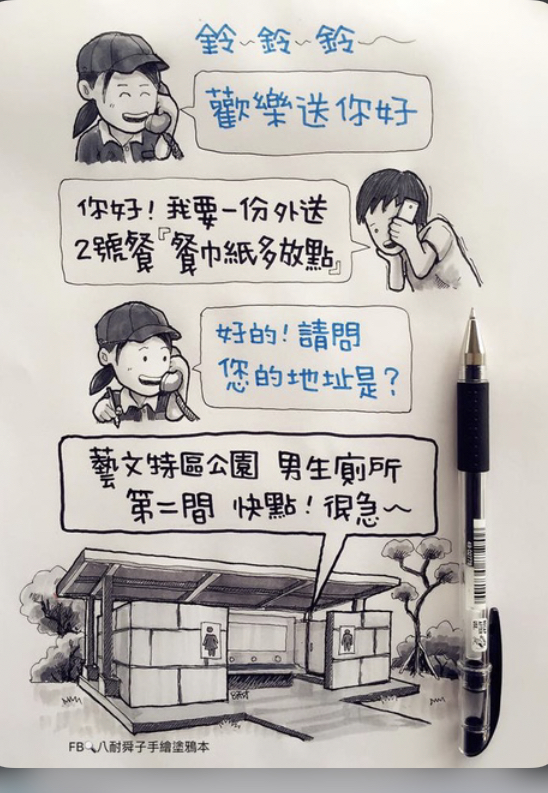 鈴~鈴~鈴~
歡樂送你好
你好！我要一份外送
2號餐『餐巾紙多放點』
好的！請問
您的地址是？
藝文特區公園 男生廁所
第二間 快點！很急~
FB🔍八耐舜子手繪塗鴉本